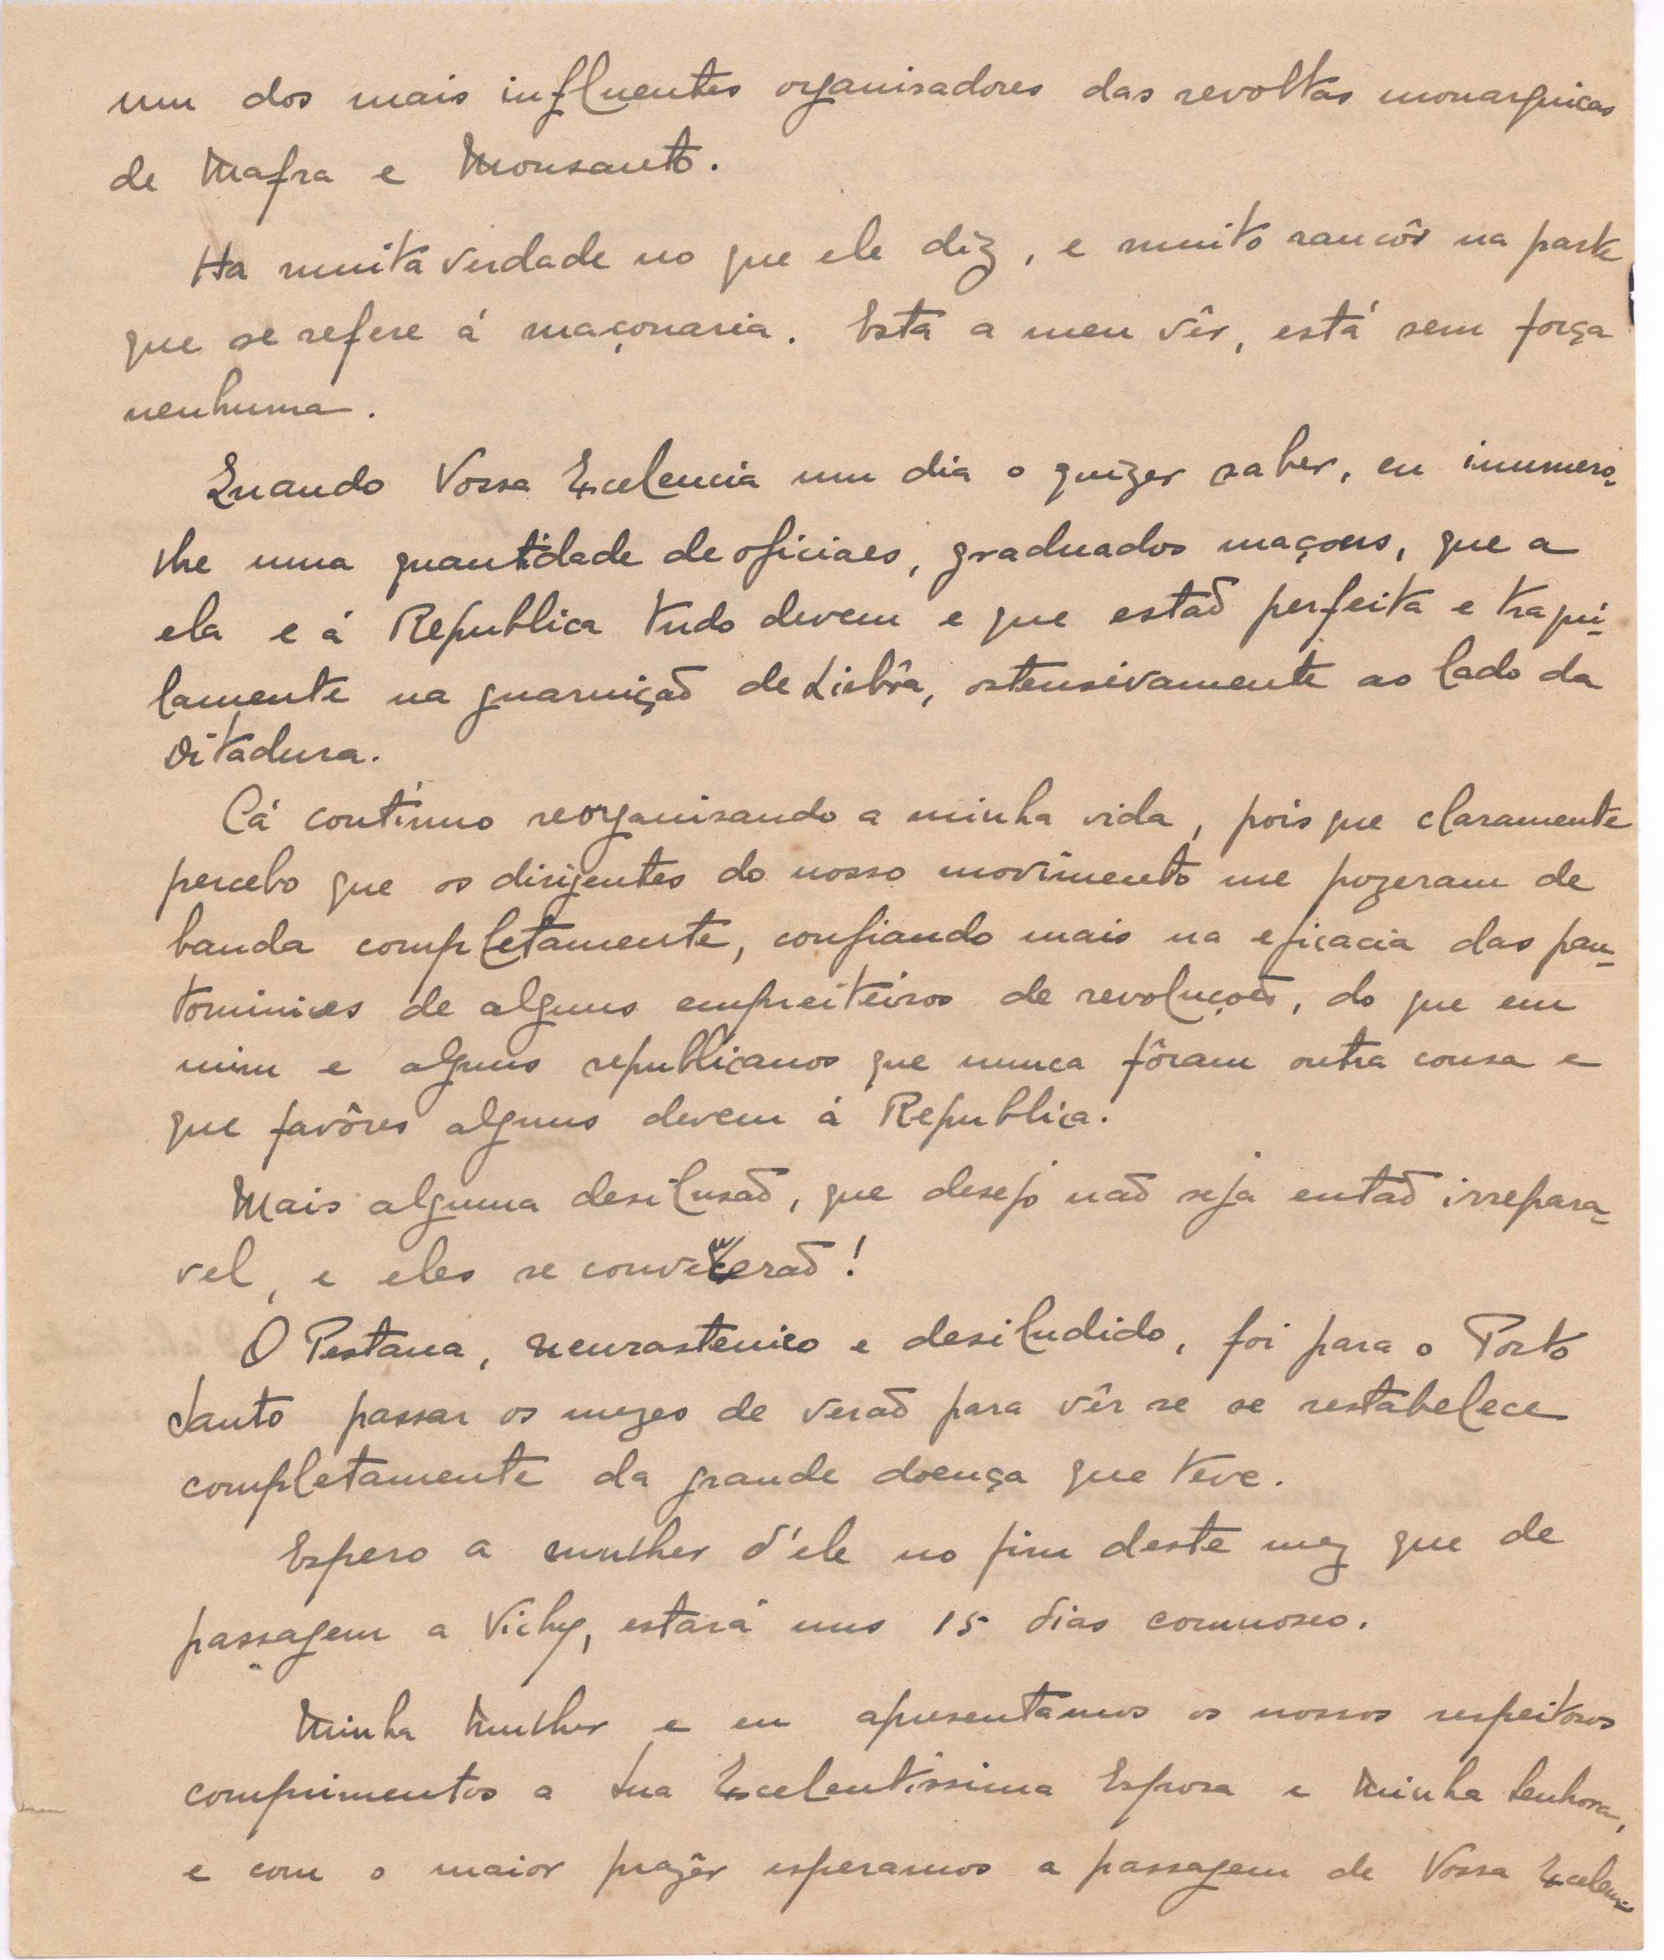 um dos mais influentes organisadores das revoltas monarquicas
de Mafra e Monsanto.
Ha muita verdade no que ele diz, e muito rancôr na parte
que se refere á maçonaria. Esta a meu vêr, está sem força
nenhuma.
Quando Vossa Excelencia um dia o quizer saber, eu inumero-
lhe uma quantidade de oficiaes, graduados maçons, que a
ela e á Republica tudo devem e que estão perfeita e traqui-
lamente na guarnição de Lisbôa, ostensivamente ao lado da
Ditadura.
Cá continuo reorganisando a minha vida, pois que claramente
percebo que os dirigentes do nosso movimento me pozeram de
banda completamente, confiando mais na eficacia das pan-
tominices de alguns empreiteiros de revoluções, do que em
mim e alguns republicanos que nunca fôram outra cousa e
que favôres alguns devem á Republica.
Mais alguma desilusão, que desejo não seja então irrepara-
vel, e eles se convencerão!
O Pestana, neurastenico e desiludido, foi para o Porto
Santo passar os mezes de verão para vêr se se restabelece
completamente da grande doença que teve.
Espero a mulher d'ele no fim deste mez que de
passagem a Vichy, estará uns 15 dias comnosco.
Minha Mulher e eu apresentamos os nossos respeitosos
comprimentos a Sua Excelentissima Esposa e Minha Senhora,
e com o maior prazêr esperamos a passagem de Vossa Excelen-